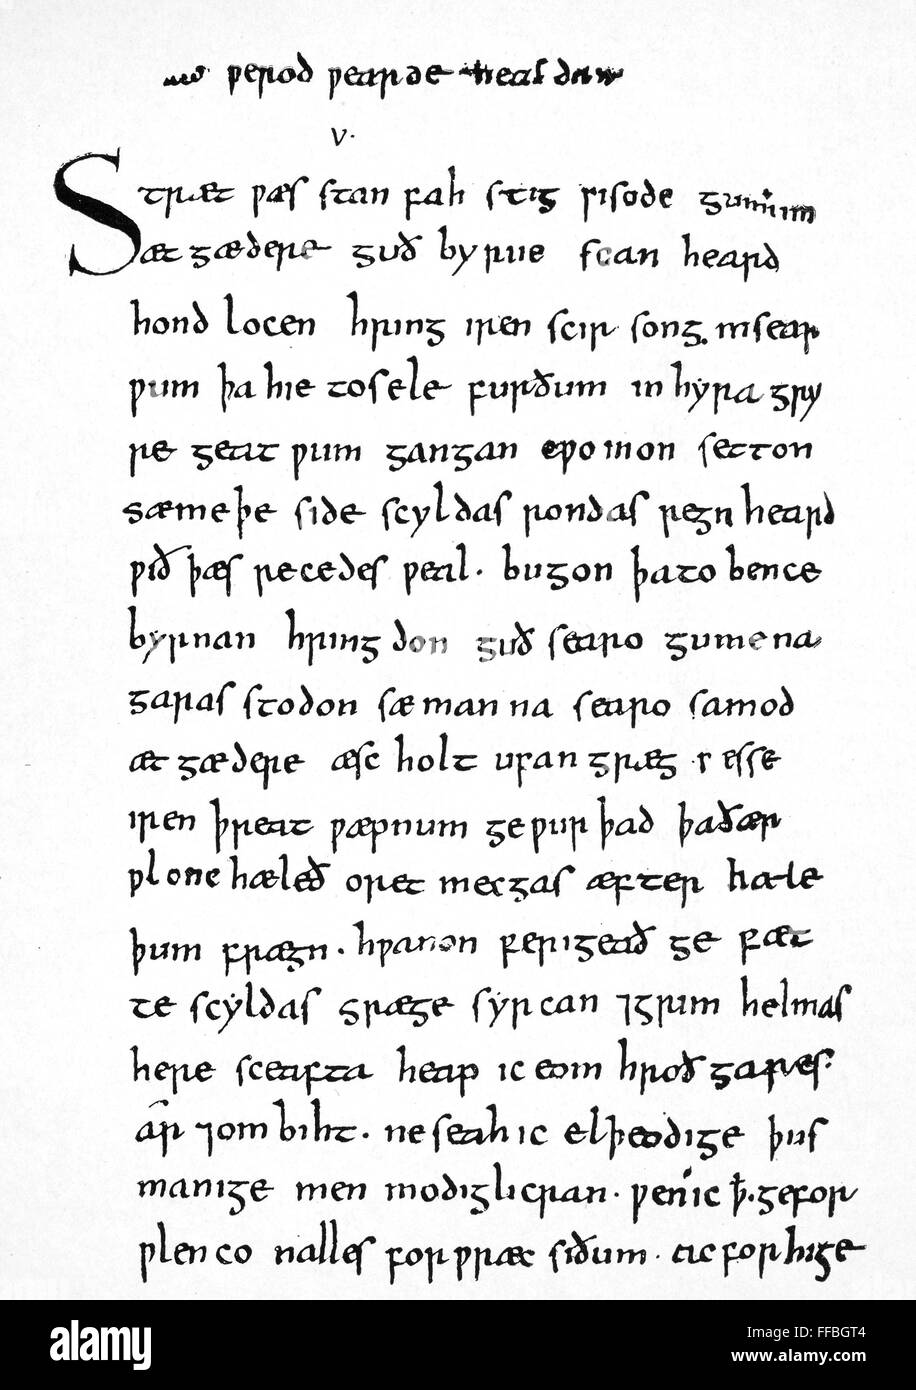 ƿerod ƿearde
V.
Stræt ƿæs stan fah stig ƿisode gumum
æt gædere guð byrne scan heard
hond locen hring iren scir song insear
ƿum þa hie to sele furðum in hyra gry
re geat ƿum gangan cƿomon setton
sæmeþe side scyldas rondas regn heard
ƿið þæs recedes ƿeal. bugon þa to bence
byrnan hringdon guð searo gumena
garas stodon sæ manna searo samod
æt gædere æsc holt ufan græg ƿ esse
iren þreat ƿæpnum geƿurþad þa ðær
ƿlonc hæleð oret mecgas æfter hæle
þum frægn. hƿanon ferigeað ge fæt
te scyldas græge syrcan ⁊ grim helmas
here sceafta heap ic eom hroðgares.
ar ⁊ ombiht. ne seah ic elþeodige þus
manige men modiglicran. ƿen ic ꝥ. ge for
ƿlenco nalles for ƿræc siðum. ac for hige
alamy
alamy
Image ID: FFBGT4
www.alamy.com